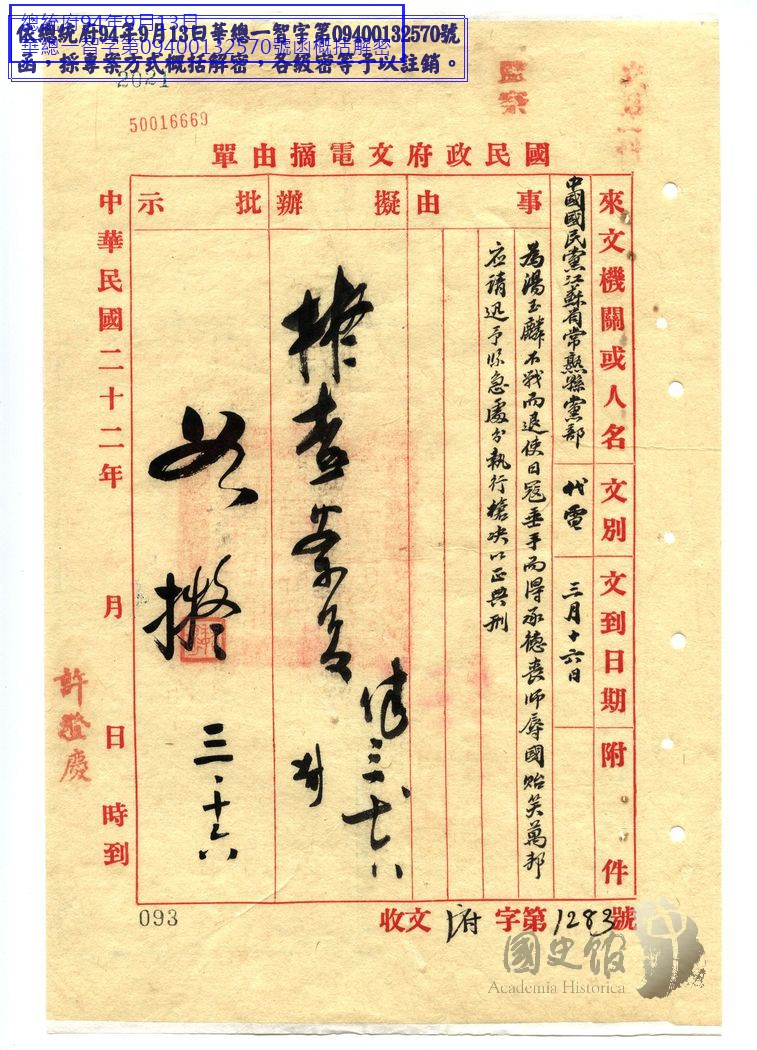 總統府94年9月13日
華總一智字第09400132570號函概括解密
依總統府94年9月13日華總一智字第09400132570號
函，採專案方式概括解密，各級密等予以註銷。
2021
50016669
監察
國民政府文電摘由單
來文機關或人名
中國國民黨江蘇省常熟縣黨部
文別
代電
文到日期
三月十六日
附件
事由
為湯玉麟不戰而退使日寇垂手而得承德喪師辱國貽笑萬邦
应請迅予緊急處分執行槍决以正典刑
擬辦
擬查案
批示
如擬
三、十六
中華民國二十二年 月 日 時到
許登慶
093
收文 府 字第1283號
國史館
Academia Historica